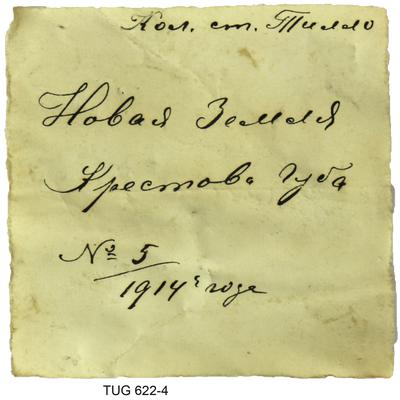 Кол. ст. Тилло
Новая Земля
Крестова Губа
№ 5
1914 г. года
TUG 622-4